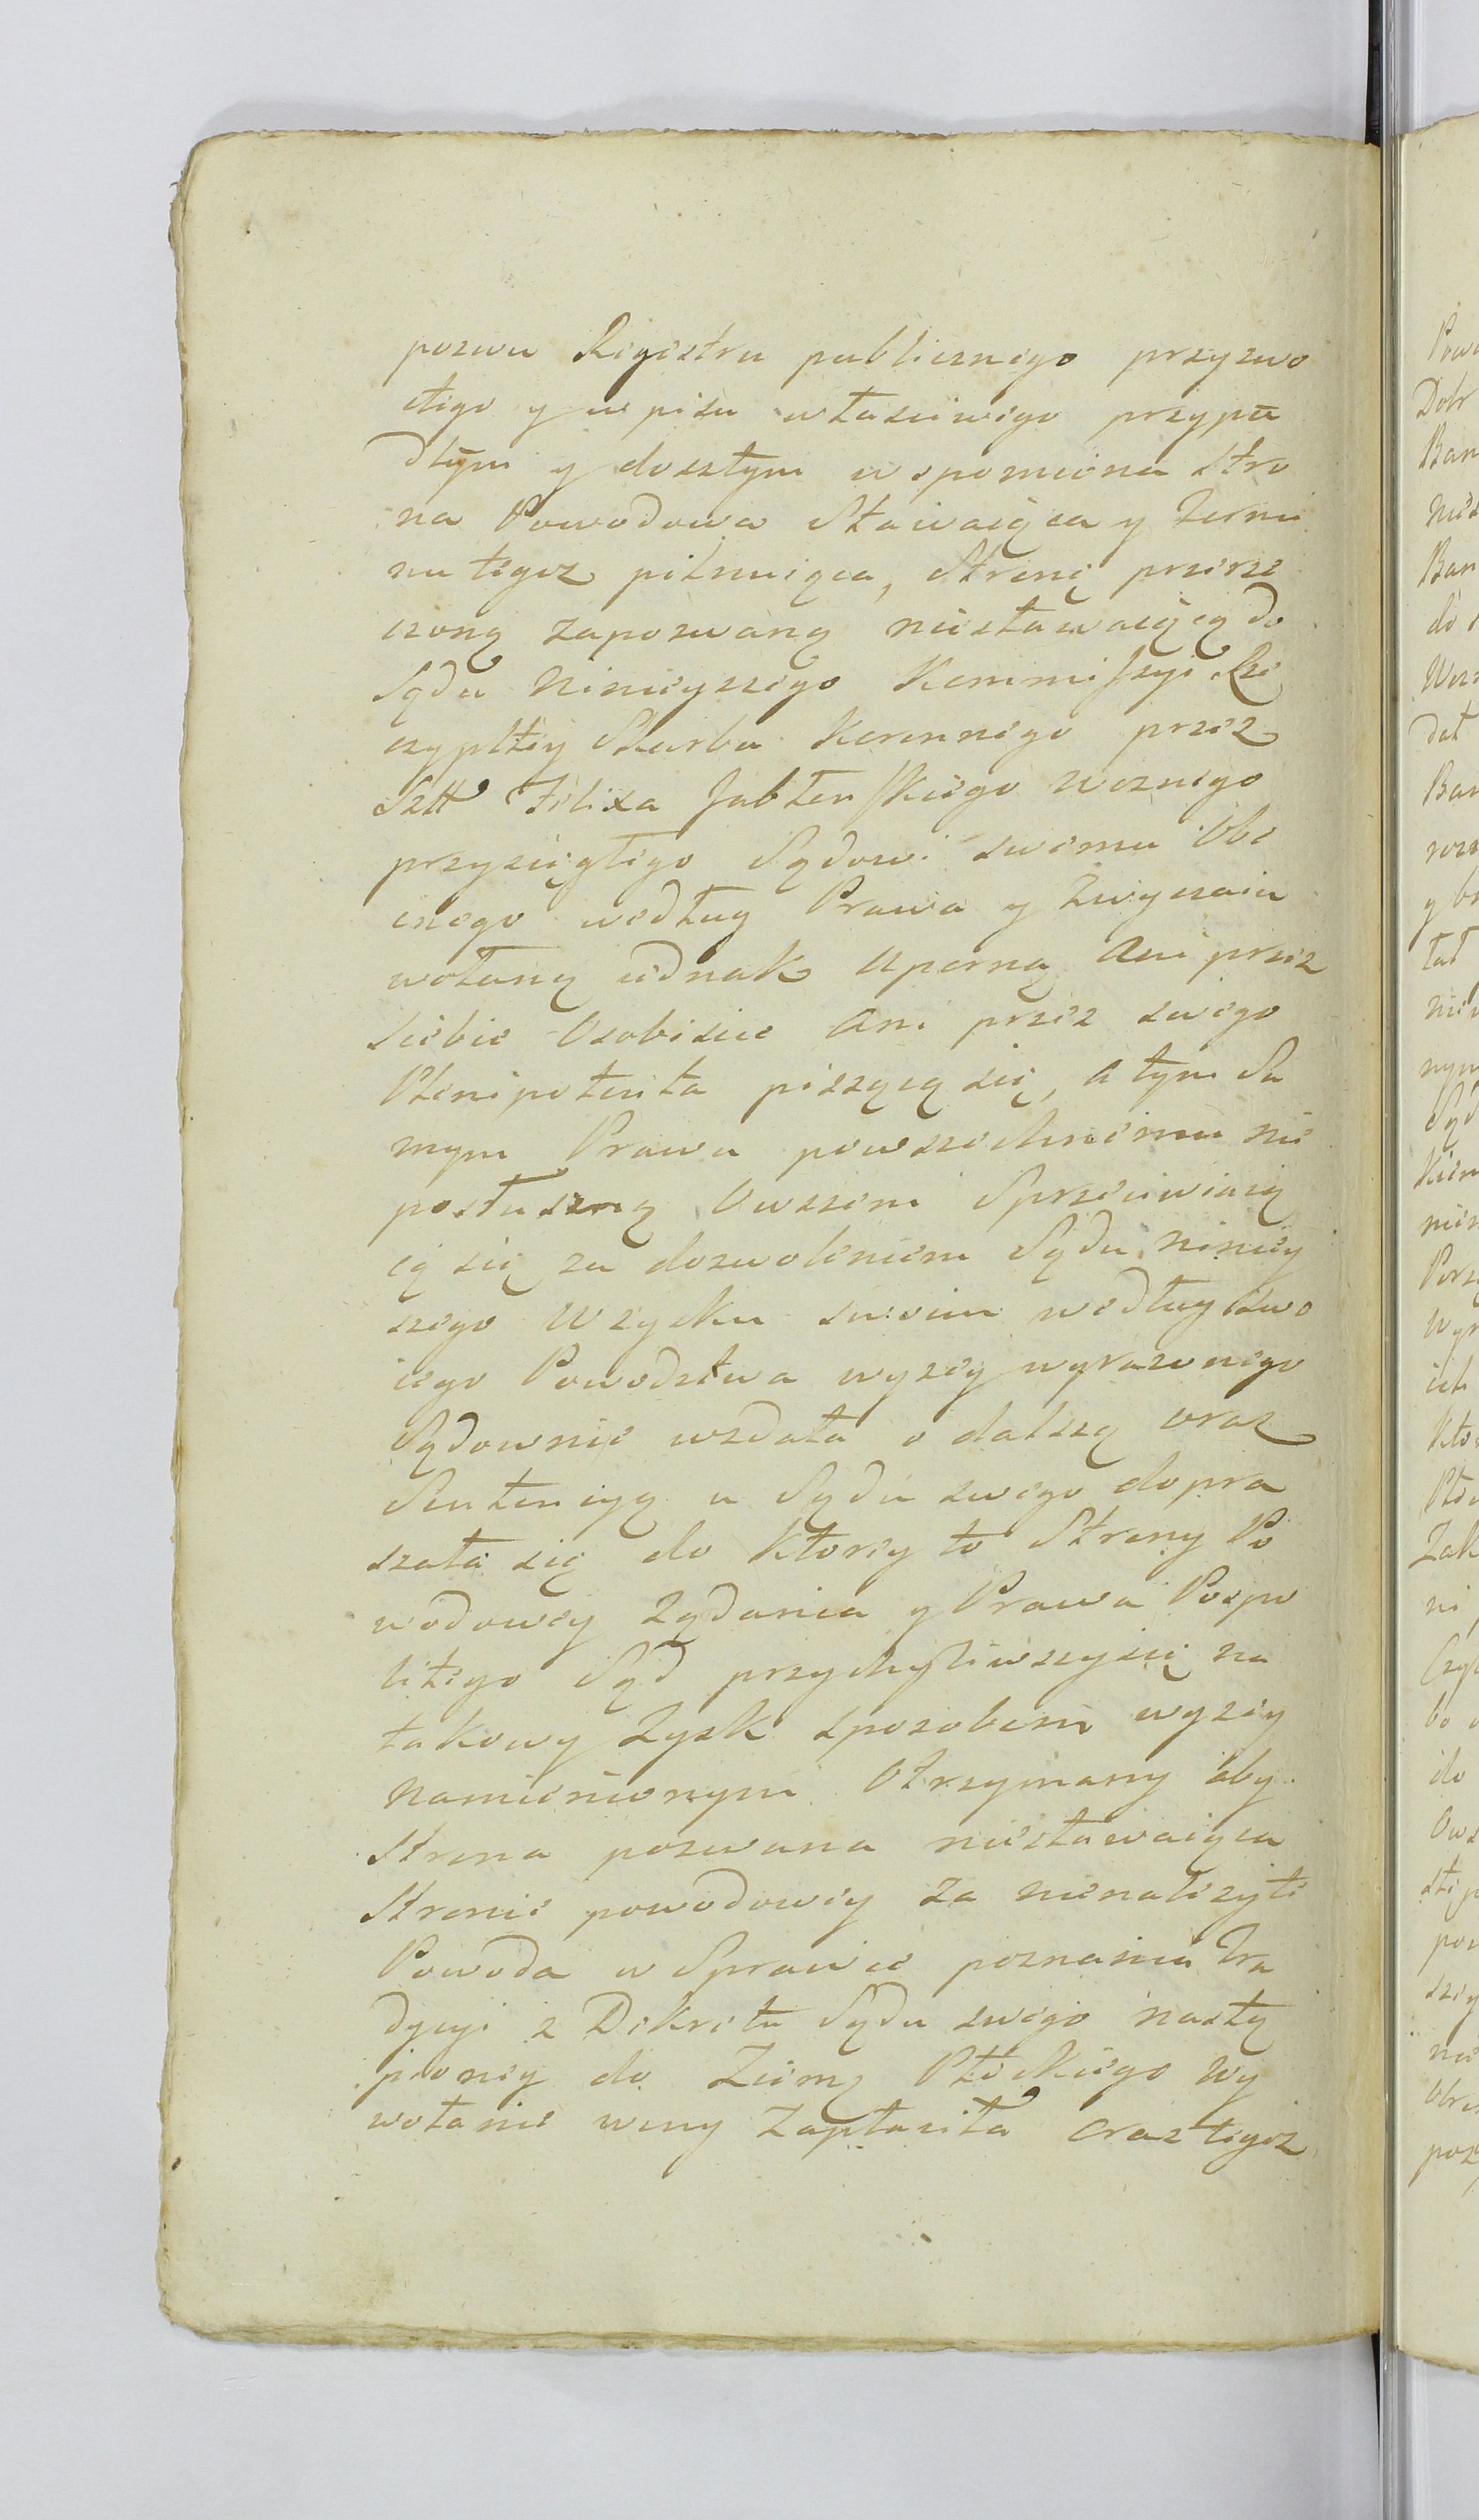 pozwu Regestru publicznego przyzwo
itego y w pisu własciwego przypa
dłym y doszłym wspomniona stro
na Powodowa Stawaiąca y Termi
nu tegoz pilnuiąca, Stronę przerze
czoną zapozwaną niestawaiącą do
Sądu Ninieyszego Kommissyi Rze
czypltey Skarbu Koronnego przez
Szltt Felixa Jabłonskiego woznego
przysięgłego Sądowi swemu Obe
cnego według Prawa y zwyczaiu
wołaną iednak uporną Ani przez
siebie Osobiscie Ani przez swego
Plenipotenta piszącą się, a tym Sa
mym Prawu powszechnemu nie
posłuszną Owszem Sprzeciwiaią
cą się za dozwoleniem Sądu niniey
szego W zysku swoim według swo
iego Powodztwa wyzey wyrazonego
Sądownie wzdała o dalszą oraz
Sentencyą u Sądu swego dopra
szała się do Ktorey to Strony Po
wodowey Ządania y Prawa Pospo
litego Sąd przychyliwszy się na
takowy Zysk sposobem wyzey
namienionym Otrzymany aby
Strona pozwana niestawaiąca
Stronie powodowey za nienalezyte
Powoda w Sprawie poznania Tra
dycyi z Dekretu Sądu swego nastą
pioney do Ziems Płockiego Wy
wołanie winy zapłaciła oraz tegoz